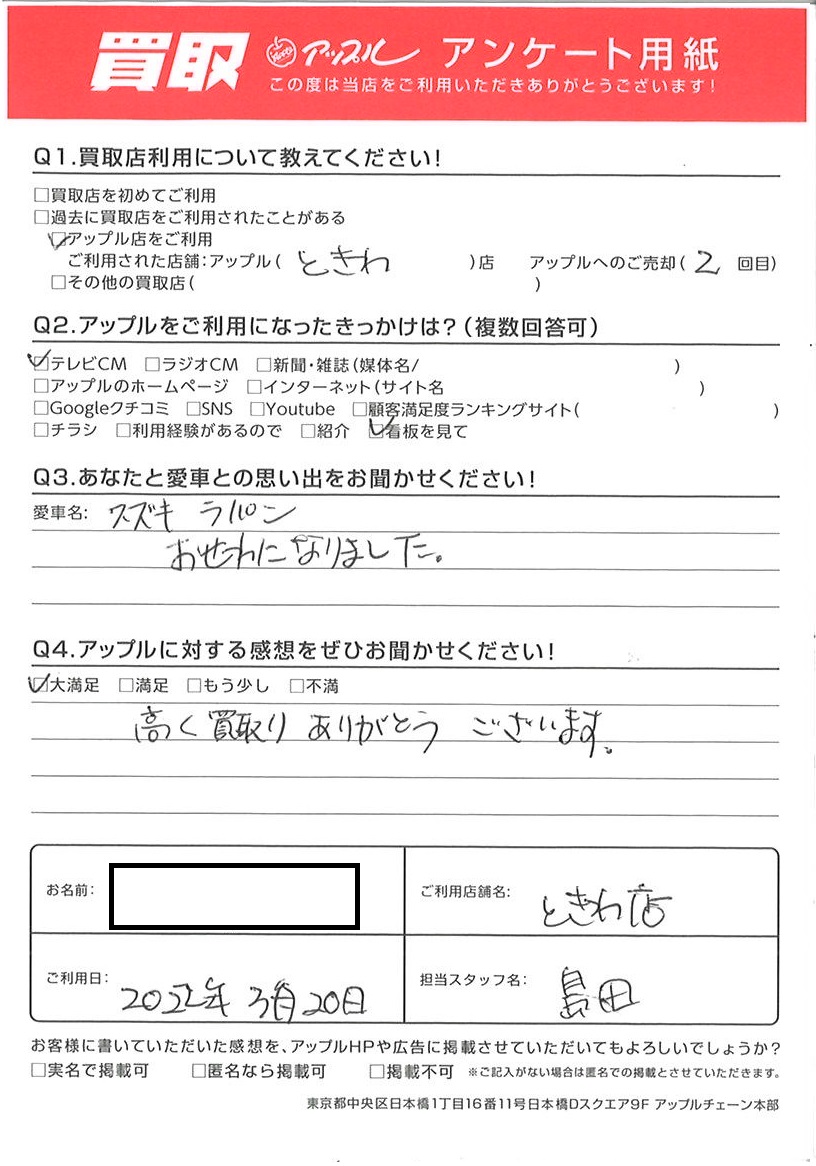 買取 アップル アンケート用紙
この度は当店をご利用いただきありがとうございます!
Q1.買取店利用について教えてください!
□買取店を初めてご利用
□過去に買取店をご利用されたことがある
☑アップル店をご利用
ご利用された店舗:アップル( ときわ )店 アップルへのご売却( 2 回目)
□その他の買取店( )
Q2.アップルをご利用になったきっかけは?(複数回答可)
☑テレビCM □ラジオCM □新聞・雑誌(媒体名/ )
□アップルのホームページ □インターネット(サイト名 )
□Googleクチコミ □SNS □Youtube □顧客満足度ランキングサイト( )
□チラシ □利用経験があるので □紹介 ☑看板を見て
Q3.あなたと愛車との思い出をお聞かせください!
愛車名: スズキ ラパン
おせわになりました。
Q4.アップルに対する感想をぜひお聞かせください!
☑大満足 □満足 □もう少し □不満
高く買取り ありがとう ございます。
お名前:
ご利用店舗名: ときわ店
ご利用日: 2022年 3月20日
担当スタッフ名: 島田
お客様に書いていただいた感想を、アップルHPや広告に掲載させていただいてもよろしいでしょうか?
□実名で掲載可 □匿名なら掲載可 □掲載不可 ※ご記入がない場合は匿名での掲載とさせていただきます。
東京都中央区日本橋1丁目16番11号日本橋Dスクエア9F アップルチェーン本部